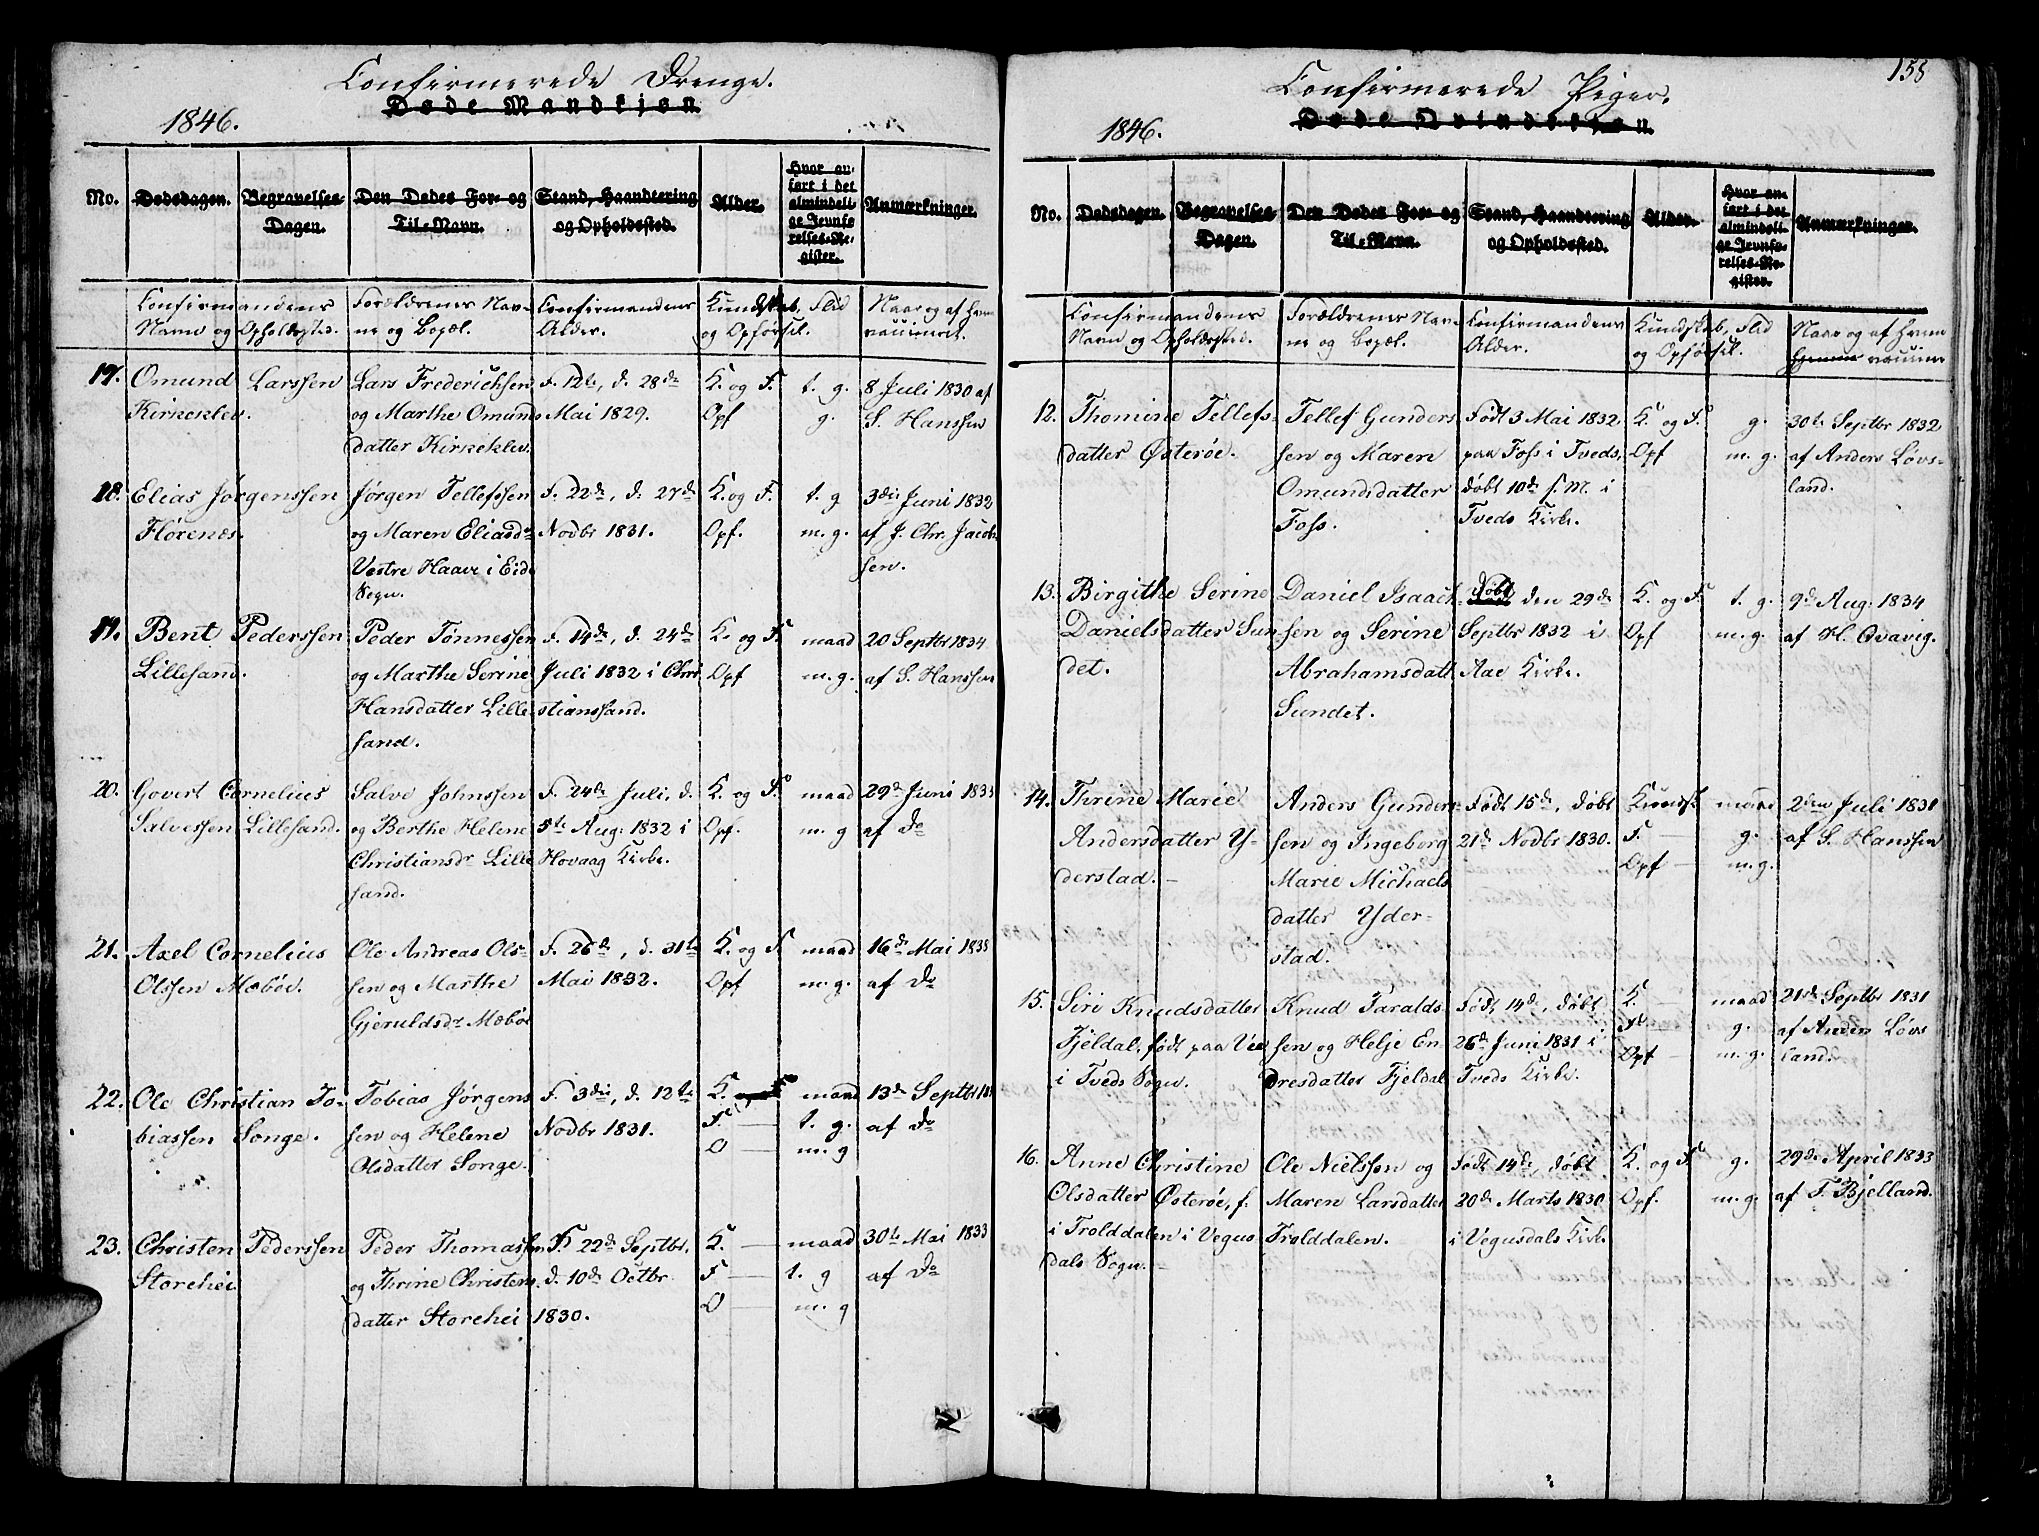 Confirmerede Drenge.
Døde Mandkjøn
1846.
No.
Dødsdagen.
Begravelses-
Dagen.
Den Dødes For- og
Til-Navn.
Stand, Haandtering
og Opholdssted.
Alder.
Hvor an-
ført i det
almindeli-
ge Jevnfø-
relses-Re-
gister.
Anmærkninger.
Confirmandens
Navn og Opholdssted.
Forældrenes Nav-
ne og Bopæl.
Confirmandens
Alder.
Kundskab, Flid
og Opførsel.
Naar og af hvem
vaccineret.
17. Omund Larssen
Kirkeklev.
Lars Frederichsen
og Marthe Omunds
datter Kirkeklev.
F. 12te, d. 28de
Mai 1829.
K. og F. t. g.
Opf g.
8 Juli 1830 af
S. Hanssen
18. Elias Jørgenssen
Hørenæs.
Jørgen Tellefssen
og Maren Eliasdr
Vestre Haave i Eide
Sogn.
F. 22de, d. 27de
Novbr 1831.
K. og F. t. g
Opf. m. g.
3die Juni 1832
af J. Chr. Jacob-
sen.
19. Bent Pederssen
Lillesand.
Peder Tønnessen
og Marthe Serine
Hansdatter Lille
sand.
F. 14de, d. 24de
Juli 1832 i Chri
stianssand.
K. og F. maad
Opf m. g.
20 Septbr 1834
af S. Hanssen
20. Govert Cornelius
Salvessen Lillesand.
Salve Johnssen
og Berthe Helene
Christiansdr Lille
sand.
F. 24de Juli, d.
5te Aug: 1832 i
Hovaag Kirke.
K. og F. maad
Opf. m. g
29de Juni 1833
af Do
21. Axel Cornelius
Olssen Mæbøe.
Ole Andreas Ols-
sen og Marthe
Gjeruldsdr Mæbøe
F. 26de, d. 31te
Mai 1832.
K. og F. maad
Opf m. g.
16de Mai 1833
af Do
22. Ole Christian To-
biassen Songe.
Tobias Jørgens
sen og Helene
Olsdatter Songe.
F. 3die, d. 12te
Novbr 1831.
K. maad
F. t. g.
O m. g
13de Septbr
af Do
23. Christen Pederssen
Storehei
Peder Thomassen
og Thrine Christens
datter Storehei
F. 22de Septbr,
d. 10de Octbr
1830.
K. maad
F t. g
O m. g
30te Mai 1833
af Do
158
Confirmerede Piger.
Døde Qvindekjøn.
1846.
No.
Dødsdagen.
Begravelses
Dagen.
Den Dødes For- og
Til-Navn.
Stand, Haandtering
og Opholdssted.
Alder.
Hvor an-
ført i det
almindeli-
ge Jevnfø-
relses-Re-
gister.
Anmærkninger.
Confirmandens
Navn og Opholdssted.
Forældrenes Nav-
ne og Bopæl.
Confirmandens
Alder.
Kundskab, Flid
og Opførsel.
Naar og af hvem
12. Thomine Tellefs-
datter Østerøe.
Tellef Gunders
sen og Maren
Omundsdatter
Foss.
Født 3 Mai 1832
paa Foss i Tveds,
døbt 10de s. M. i
Tveds Kirke.
K. og F. g.
Opf m. g.
30te Septbr 1832
af Anders Løvs-
land.
13. Birgithe Serine
Danielsdatter Sun
det.
Daniel Isaach-
sen og Serine
Abrahamsdatt
Sundet.
Døbt den 29de
Septbr 1832 i
Aae Kirke.
K. og F. t. g.
Opf m. g.
9de Aug: 1834
af H. Qvavig.
14. Thrine Marie
Andersdatter Y-
derstad.
Anders Gunders-
sen og Ingeborg
Marie Michaels
datter Yder-
stad.
Født 15de, døbt
21de Novbr 1830.
Kundsk. maad
F. g.
Opf m. g.
2den Juli 1831
af S. Hanssen
15. Siri Knudsdatter
Fjeldal, født paa Vee
i Tveds Sogn.
Knud Taralds-
sen og Helje En-
dresdatter Fjeldal
Født 14de, døbt
26de Juni 1831 i
Tveds Kirke.
K. maad
F. g.
Opf m. g.
21de Septbr 1831
af Anders Løvs
land.
16. Anne Christine
Olsdatter Østerøe, f.
i Trolddalen i Vegus
dals Sogn.
Ole Nielssen og
Maren Larsdatter
Trolddalen.
Født 14de, døbt
20de Marts 1830
i Vegusdals Kirke
K. og F. g.
Opf. m. g.
29de April 1833
af T. Bjelland.